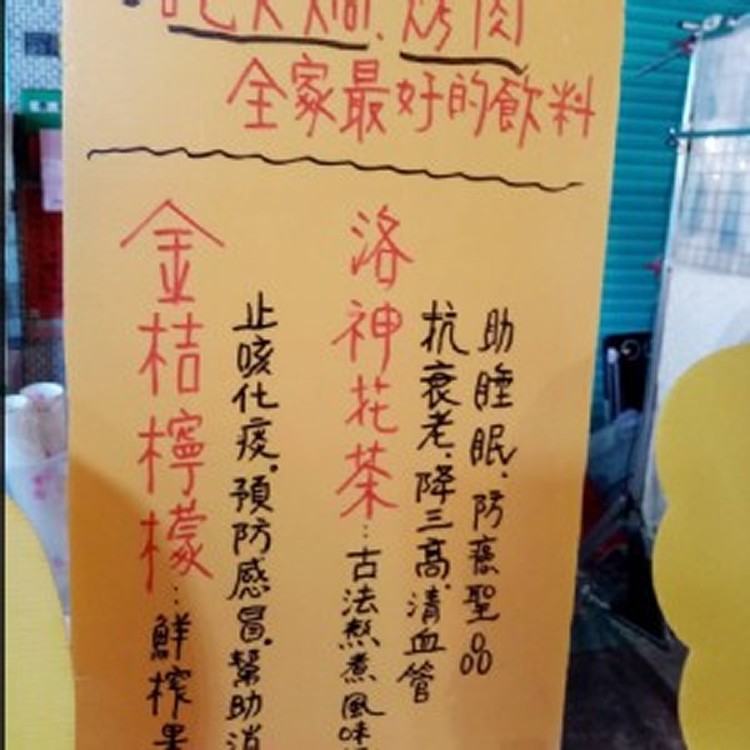 吃火鍋、烤肉
全家最好的飲料
助睡眠、防癌聖品
抗衰老、降三高、清血管
洛神花茶：古法熬煮風味
止咳化痰。預防感冒。幫助消
金桔檸檬：鮮榨果